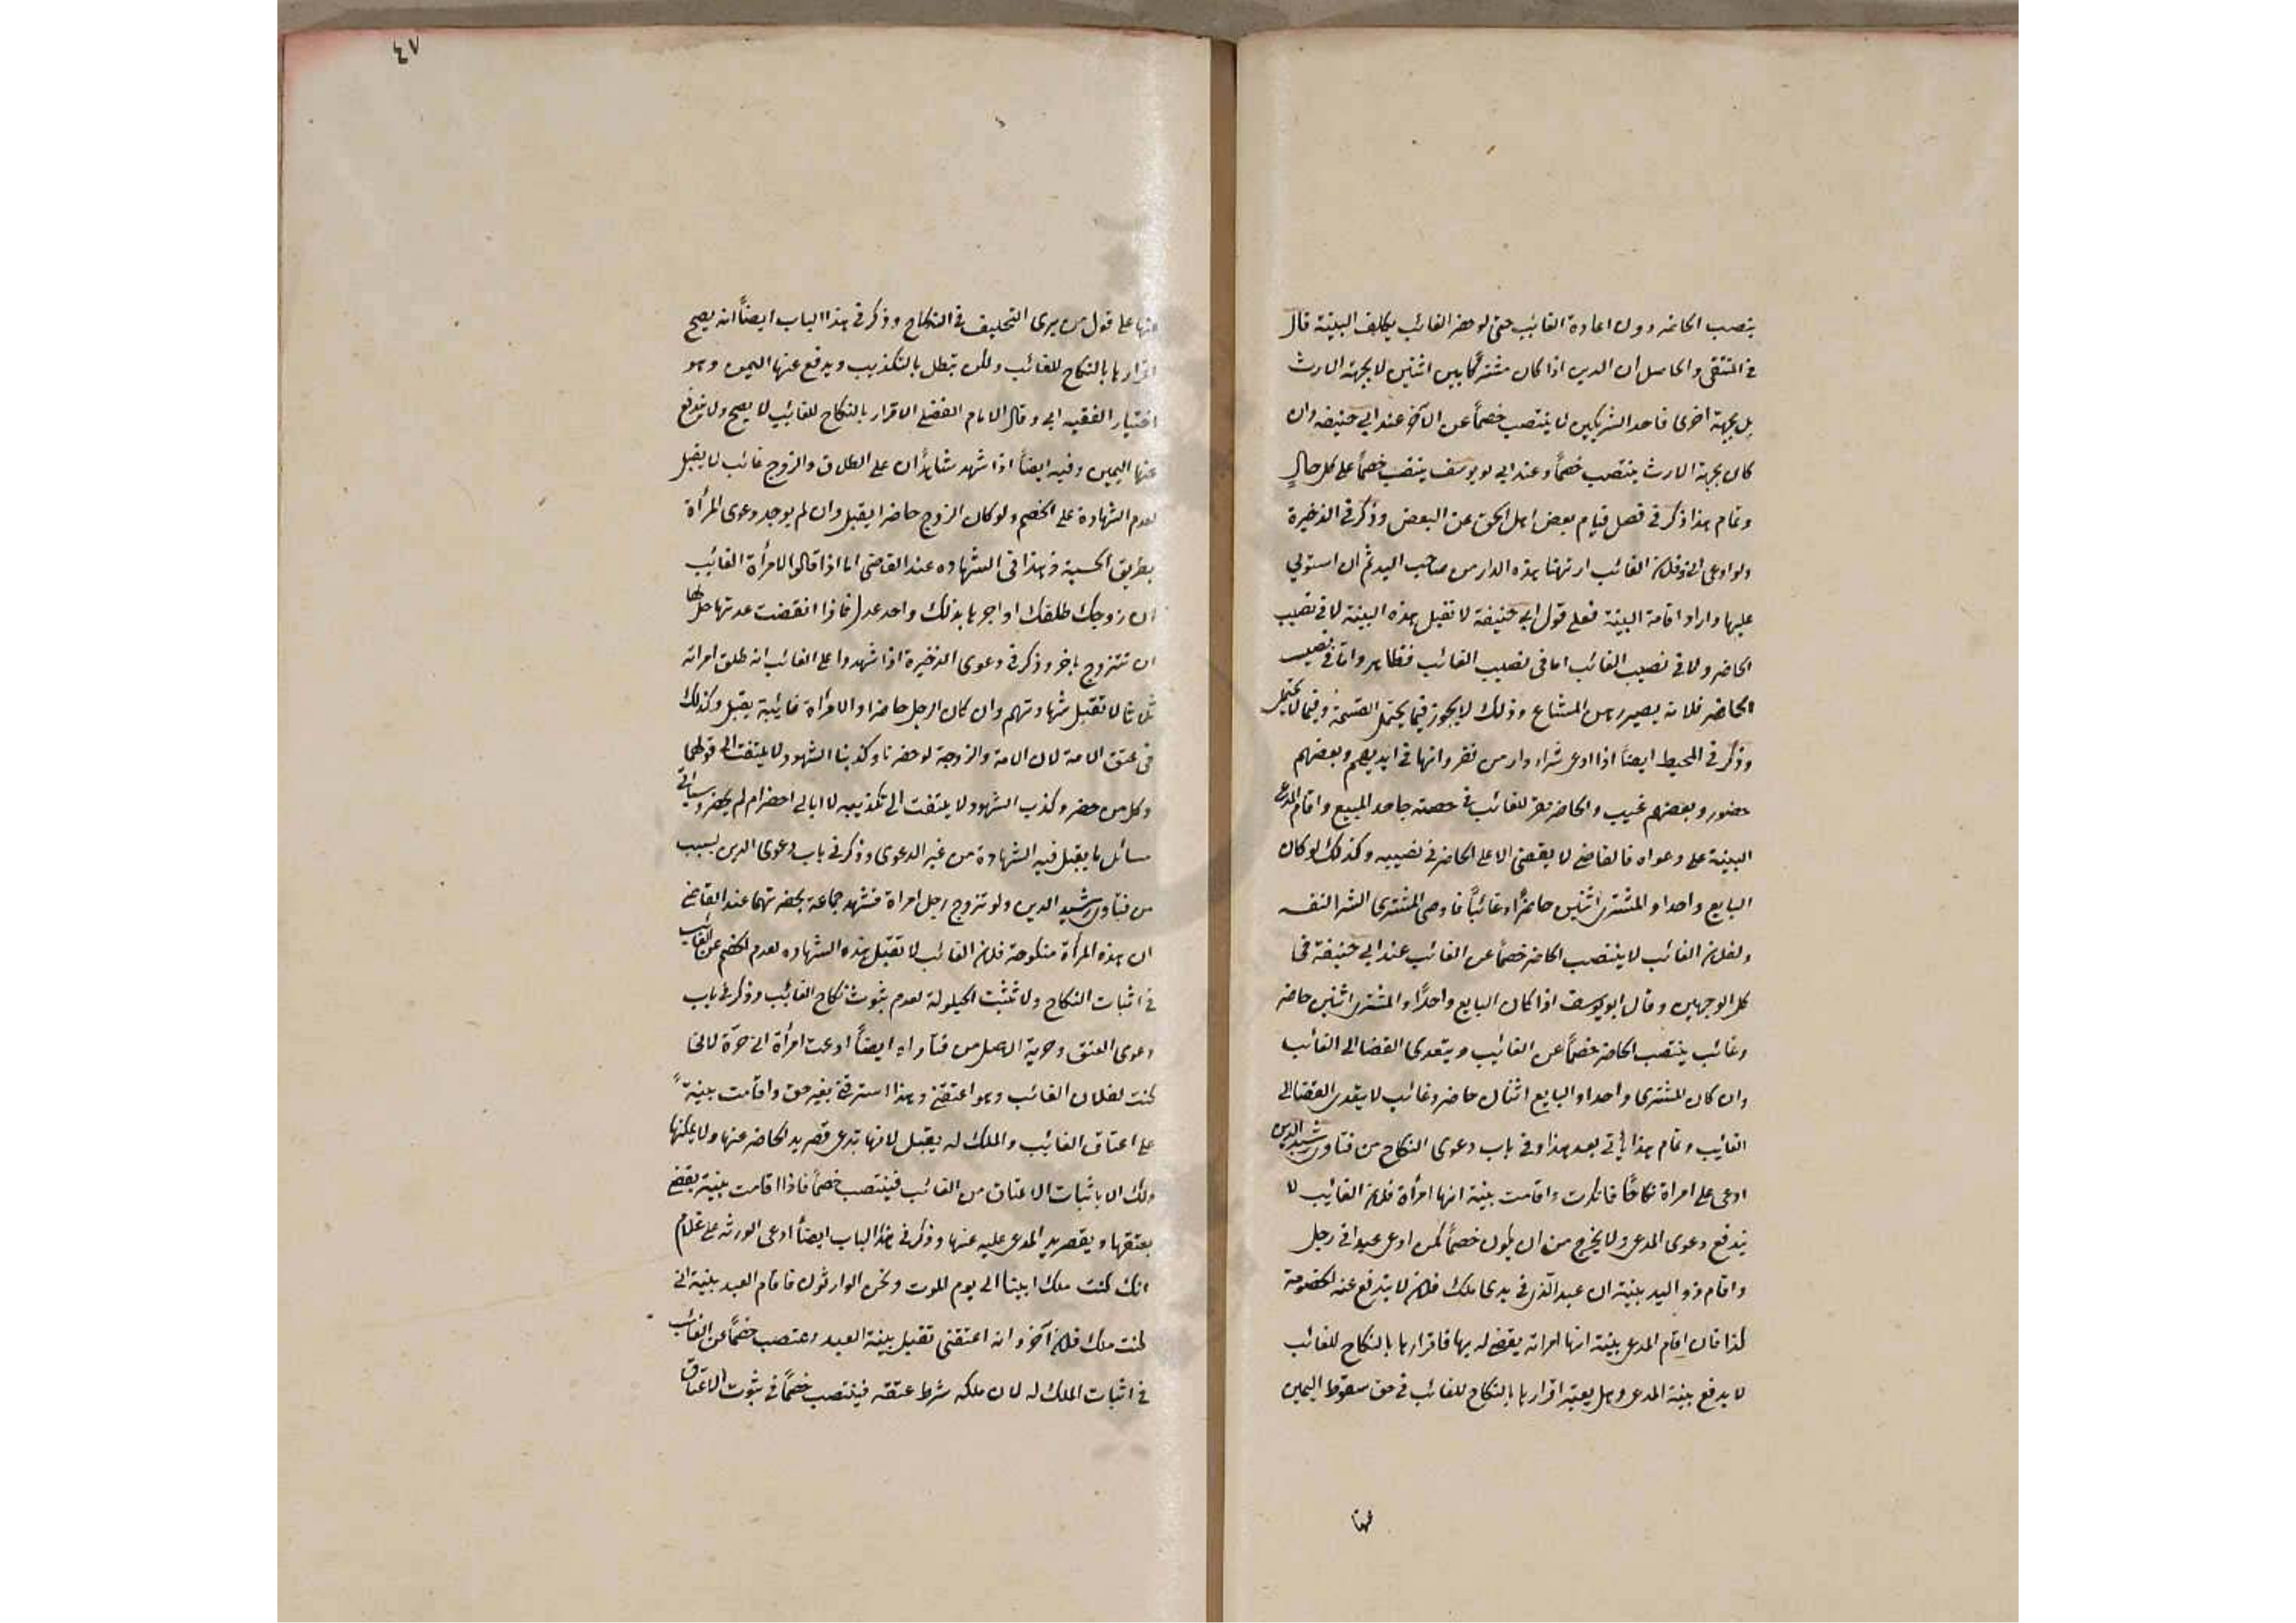 ينصب الحاضر دون اعادة الغائب حتى لو حضر الغائب يكلف البينة قال
في المنتقى والحاصل ان الدين اذا كان مشتركا بين اثنين لا بجهة الارث
بل بجهة اخرى فاحد الشريكين لا ينتصب خصماً عن الآخر عند ابي حنيفه وان
كان بجهة الارث ينتصب خصماً وعند ابي يوسف ينتصب خصماً على كل حالٍ
وتمام هذا ذكر في فصل قيام بعض اهل الحق عن البعض وذكر في الذخيرة
ولو ادعى اني وفلان الغائب ارتهنا هذه الدار من صاحب اليد ثم ان استولي
عليها واراد اقامة البينة فعلى قول ابي حنيفة لا تقبل هذه البينة لا في نصيب
الحاضر ولا في نصيب الغائب اما في نصيب الغائب فظاهر واما في نصيب
الحاضر فلانه يصير رهن المشاع وذلك لا يجوز فيما يحتمل القسمة وفيما لا يحتمل
وذكر في المحيط ايضاً اذا ادعى شراء دار من نفر وانها في ايديهم وبعضهم
حضور وبعضهم غيب والحاضر مقر للغائب في حصته جاحد المبيع واقام المدعى
البينة على دعواه فالقاضي لا يقضى الا على الحاضر في نصيبه وكذلك لو كان
البايع واحدا والمشترى اثنين حاضراً وغائباً فادعى المشترى الشرا لنفسه
ولفلان الغائب لا ينتصب الحاضر خصماً عن الغائب عند ابي حنيفة في
كل الوجهين وقال ابو يوسف اذا كان البايع واحداً والمشترى اثنين حاضر
وغائب ينتصب الحاضر خصماً عن الغائب ويتعدى القضا الى الغائب
وان كان المشترى واحدا والبايع اثنان حاضر وغائب لا يتعدى القضا الى
الغايب وتمام هذا ياتي بعد هذا وفي باب دعوى النكاح من فتاوى رشيد الدين
ادعى على امراة نكاحًا فانكرت واقامت بينة انها امرأة فلان الغائب لا
يندفع دعوى المدعى ولا يخرج من ان يكون خصماً كمن ادعى عبدا في رجل
واقام ذو اليد بينة ان عبد الذي في يدى ملك فلان لا يندفع عنه الخصومة
كذا فان اقام المدعى بينة انها امراته يقضى له بها فاقرارها بالنكاح للغائب
لا يدفع بينة المدعى وهل يعتبر اقرارها بالنكاح للغائب في حق سقوط اليمين
عنها
٤٧
عنها على قول من يرى التحليف في النكاح وذكر في هذا الباب ايضاً انه يصح
اقرارها بالنكاح للغائب ولكن يبطل بالتكذيب ويدفع عنها اليمين وهو
اختيار الفقيه ابي وقال الامام الفضلى الاقرار بالنكاح للغايب لا يصح ولا يندفع
عنها اليمين وفيه ايضاً اذا شهد شاهدان على الطلاق والزوج غائب لا يقبل
لعدم الشهادة على الخصم ولو كان الزوج حاضرا يقبل وان لم يوجد دعوى المرأة
بطريق الحسبة وهذا في الشهاده عند القاضى اما اذا قالوا لامرأة الغائب
ان زوجك طلقك او اخبرها بذلك واحد عدل فاذا انقضت عدتها حل لها
ان تتزوج باخر وذكر في دعوى الذخيرة اذا شهدوا على الغائب انه طلق امراته
ثلاثا لا تقبل شهادتهم وان كان الرجل حاضرا والامراة غائبة يقبل وكذلك
فى عتق الامة لان الامة والزوجة لو حضرتا وكذبتا الشهود لا يلتفت الى قولهما
وكل من حضر وكذب الشهود لا يلتفت الى تكذيبه لا ابالى احضر ام لم يحضر وسياتي
مسائل ما يقبل فيه الشهادة من غير الدعوى وذكر في باب دعوى الدين بسبب
من فتاوى رشيد الدين ولو تزوج رجل امراة فشهد جماعة بحضرتهما عند القاضي
ان هذه المرأة منكوحة فلان الغائب لا تقبل هذه الشهاده لعدم الخصم عن الغائب
في اثبات النكاح ولا تثبت الحيلولة لعدم ثبوت نكاح الغائب وذكر في باب
دعوى العتق وحرية الاصل من فتاواه ايضاً ادعت امرأة اني حرّة لاني
كنت لفلان الغائب وهو اعتقنى وهذا استرقني بغير حق واقامت بينةً
على اعتاق الغائب والملك له يقبل لانها تدعى قصر يد الحاضر عنها ولا يمكنها
ذلك الا باثبات الاعتاق من الغائب فينتصب خصماً فاذا اقامت بينة يقضى
بعتقها ويقصر يد المدعى عليه عنها وذكر في هذا الباب ايضاً ادعى الورثه على غلام
انك كنت ملك ابينا الى يوم الموت ونحن الوارثون فاقام العبد بينة اني
كنت ملك فلان آخر وانه اعتقنى تقبل بينة العبد وينتصب خصماً عن الغائب
في اثبات الملك له لان ملكه شرط عتقه فينتصب خصماً في ثبوت الاعتاق